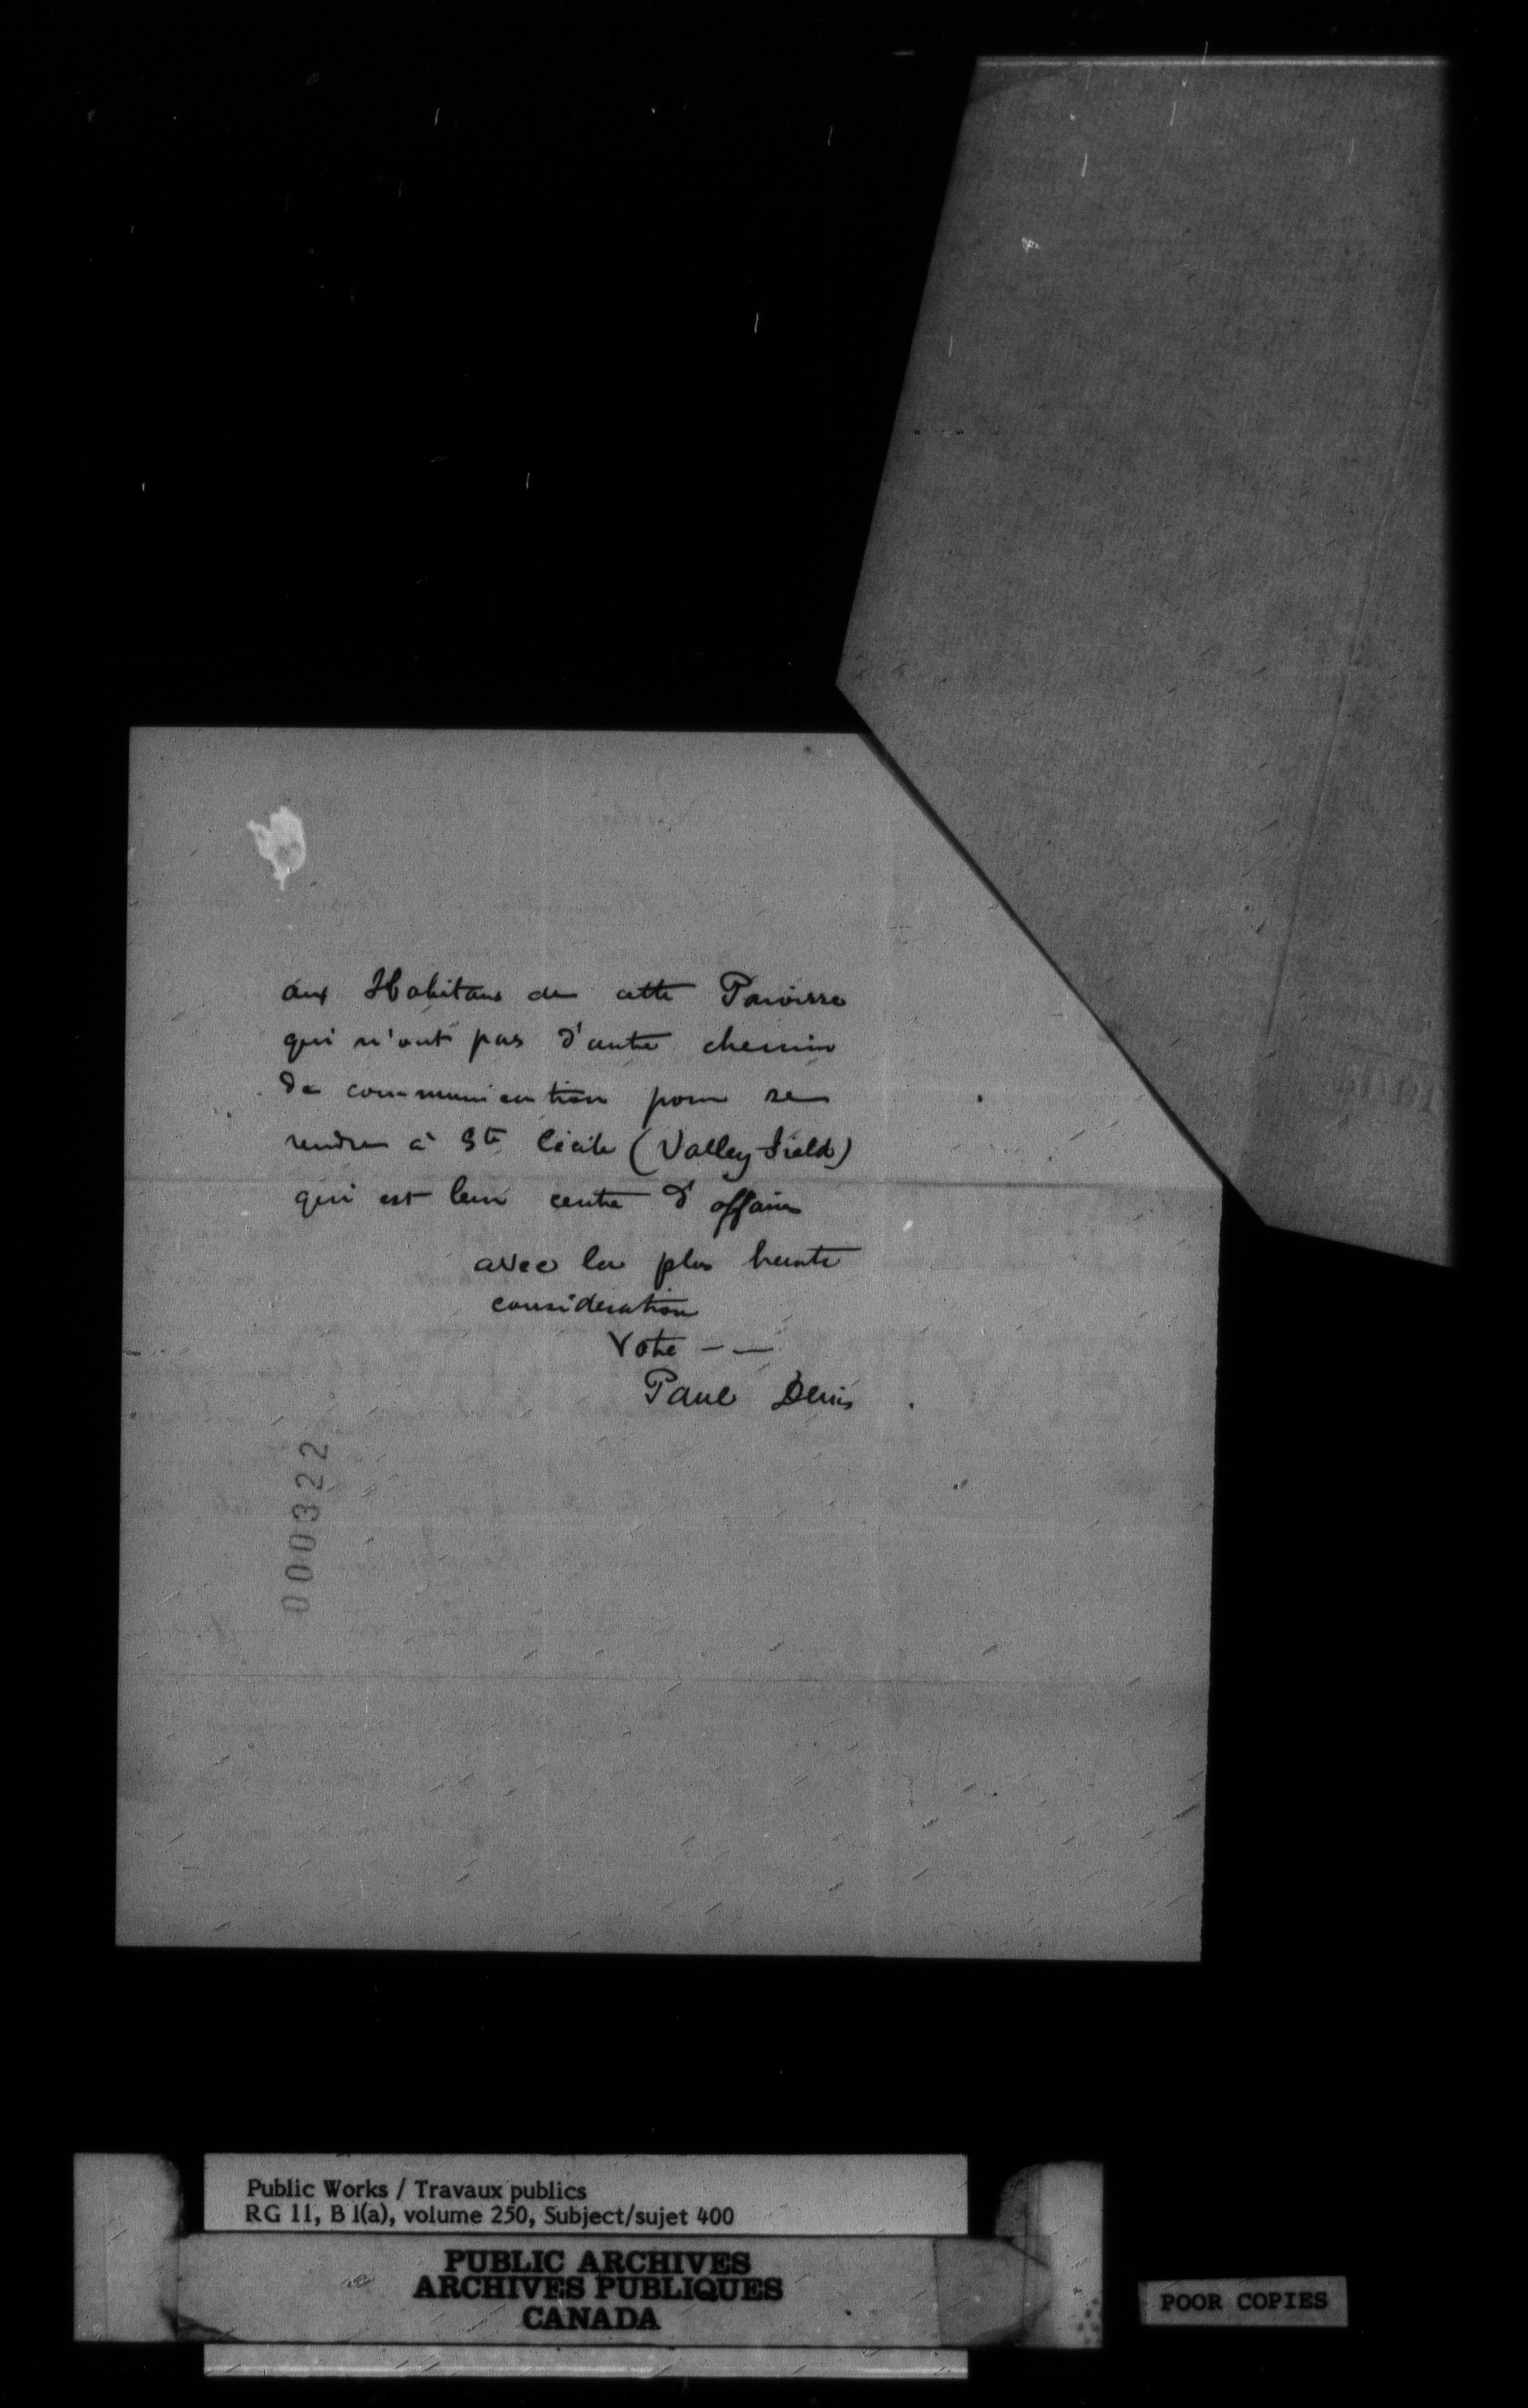 aux Habitans de cette Paroisse
qui n'ont pas d'autre chemin
de communication pour se
rendre à Ste Cécile (Valleyfield)
qui est leur centre d'affaires
avec la plus haute
considération
Votre — —
Paul Denis
000322
Public Works / Travaux publics
RG 11, B 1(a), volume 250, Subject/sujet 400
PUBLIC ARCHIVES
ARCHIVES PUBLIQUES
CANADA
POOR COPIES